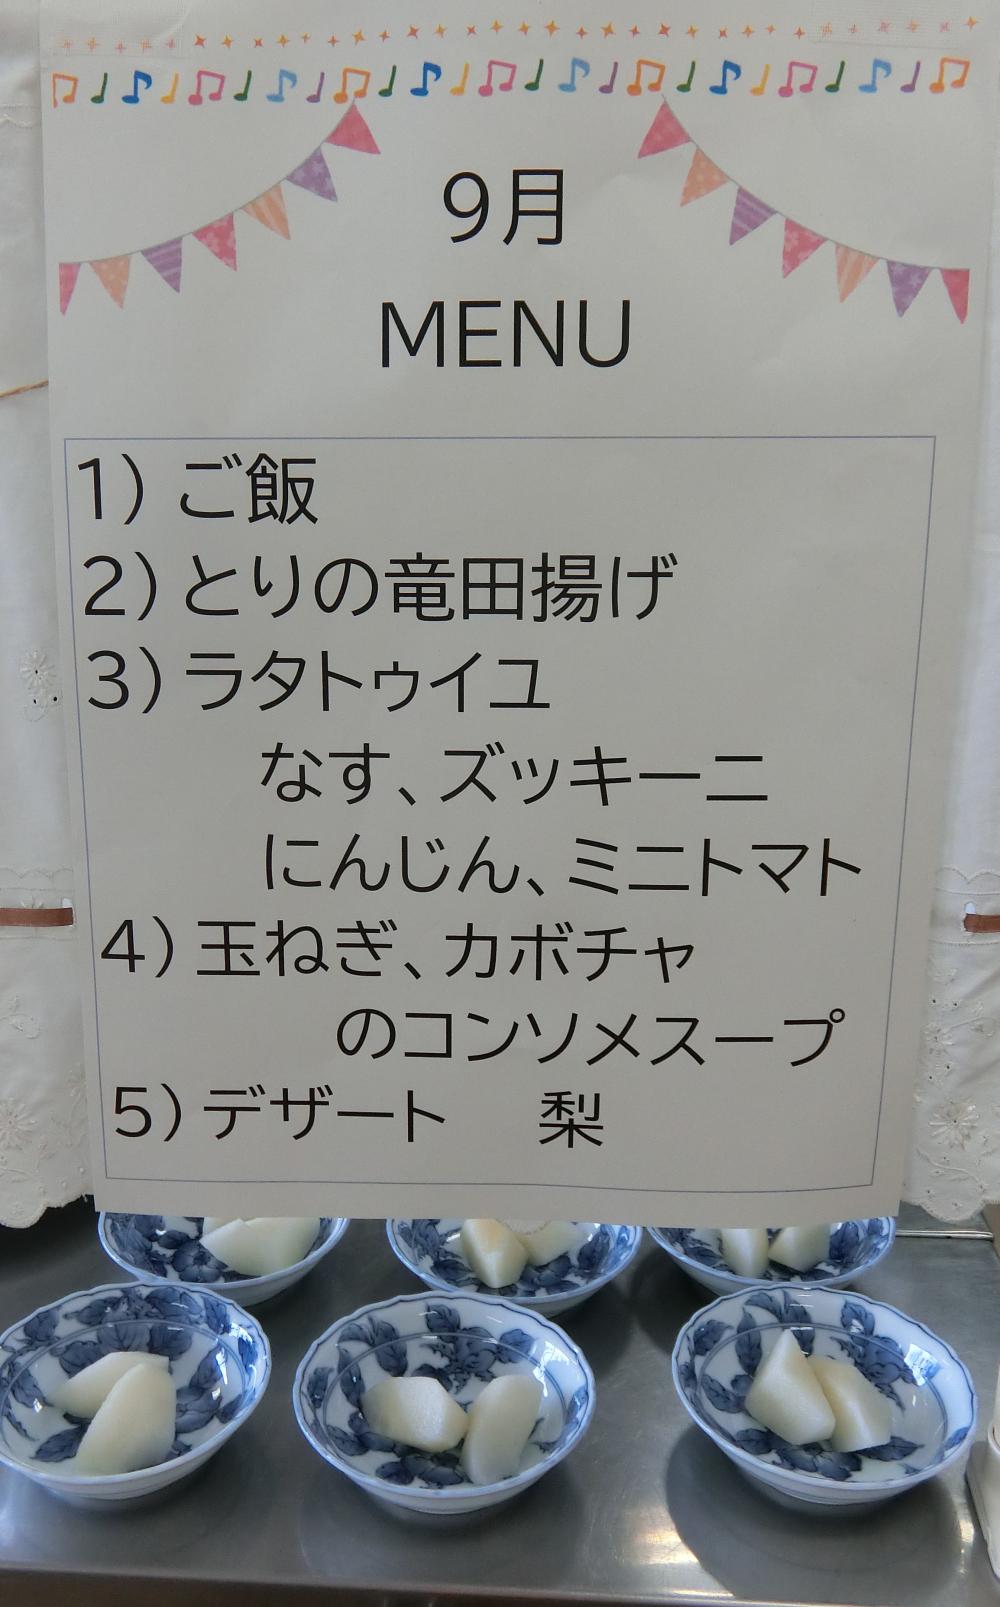 9月
MENU
1）ご飯
2）とりの竜田揚げ
3）ラタトゥイユ
なす、ズッキーニ
にんじん、ミニトマト
4）玉ねぎ、カボチャ
のコンソメスープ
5）デザート　梨